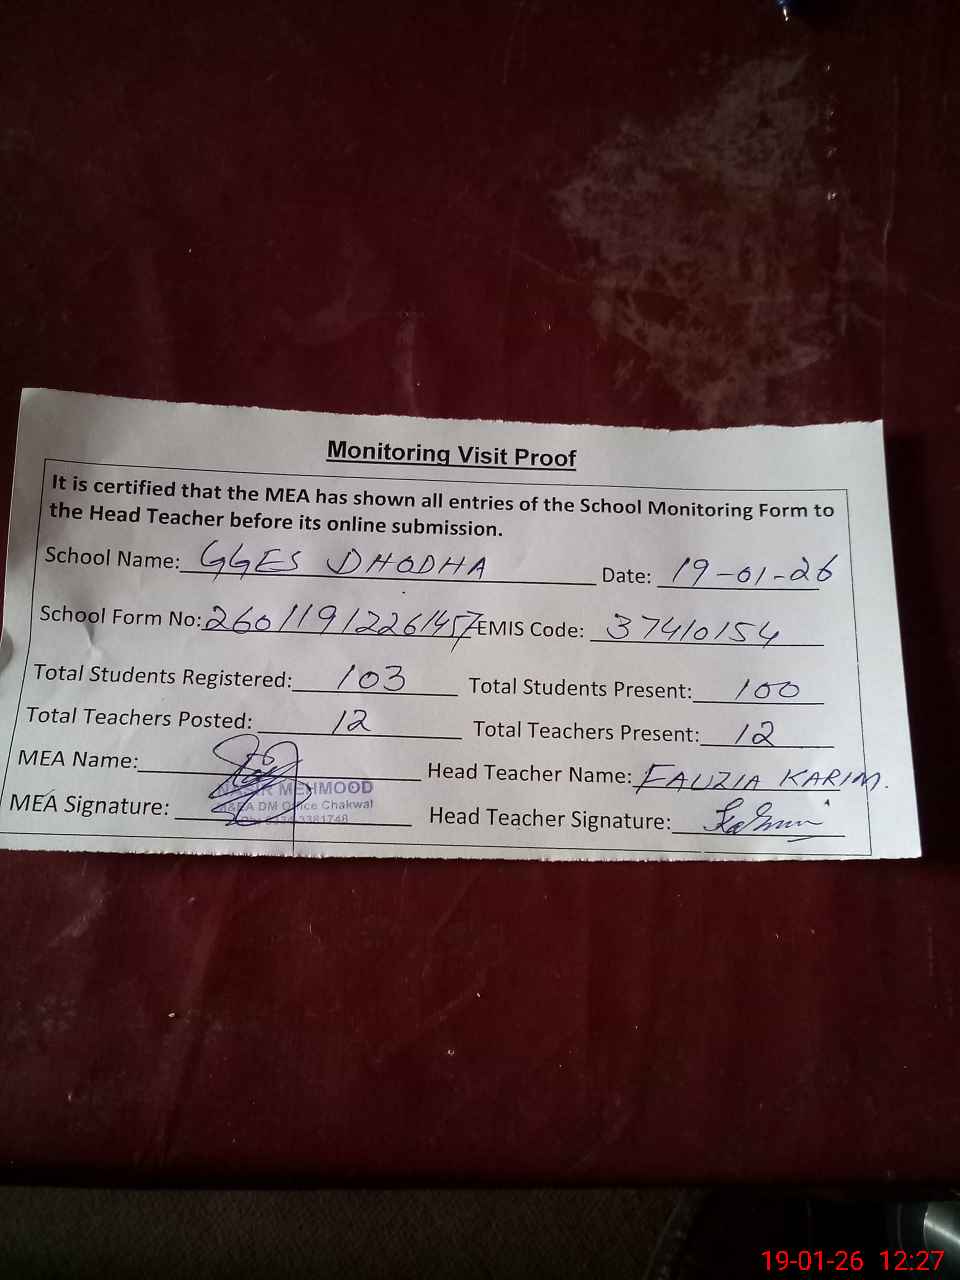 Monitoring Visit Proof
It is certified that the MEA has shown all entries of the School Monitoring Form to
the Head Teacher before its online submission.
School Name: GGES DHODHA Date: 19-01-26
School Form No: 26011912261457 EMIS Code: 37410154
Total Students Registered: 103 Total Students Present: 100
Total Teachers Posted: 12 Total Teachers Present: 12
MEA Name: Head Teacher Name: FAUZIA KARIM.
MEHMOOD
DM Office Chakwal
MEA Signature: Head Teacher Signature:
19-01-26 12:27